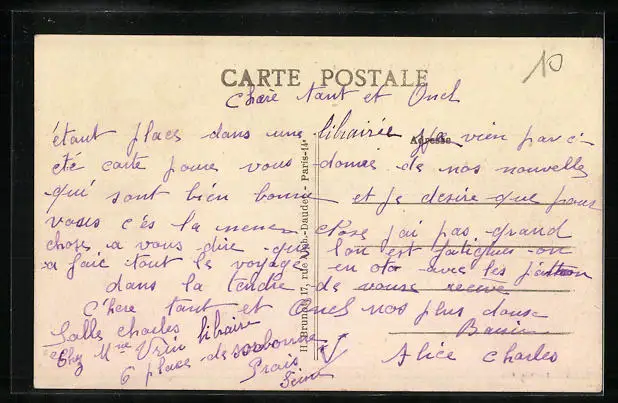 CARTE POSTALE
Chère tant et Oncl
étant places dans une librairie je vien par c
Adresse
été carte pour vous donnés de nos nouvelles
qui sont bien bonne et je desire que pour
vous c'és la meme chose j'ai pas grand
chose a vous dire que l'on est fatigues on
a faic tout le voyage en oto avec les patron
dans la tendre de vous recevé
C'here tant et Oncl nos plus douse
Baisir
Salle Charles
Chez Mme Vrin libraire
6 place de sorbonne
Prais
Seine
Alice Charles
H. Brunon, 17, rue Alph.-Daudet - Paris-14e